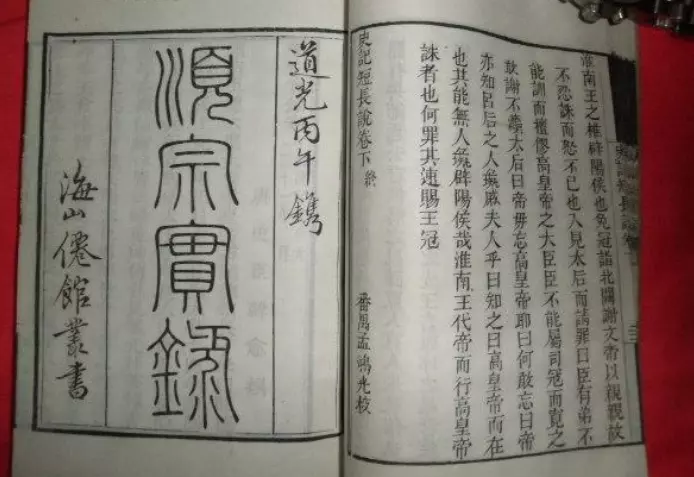 淮南王之椎辟陽侯也免冠詣北闕謝文帝以親親故
不忍誅而怒不已也入見太后而請罪曰臣有弟不
能訓而擅僇高皇帝之大臣臣不能屬司寇而寬之
敢謝不孝太后曰帝毋忘高皇帝耶曰何敢忘曰帝
亦知呂后之人彘戚夫人乎曰知之曰高皇帝而在
也其能無人彘辟陽侯哉淮南王代帝而行高皇帝
誅者也何罪其速賜王冠
史記短長說卷下終
番禺孟鴻光校
道光丙午鐫
順宗實錄
海山僊館叢書